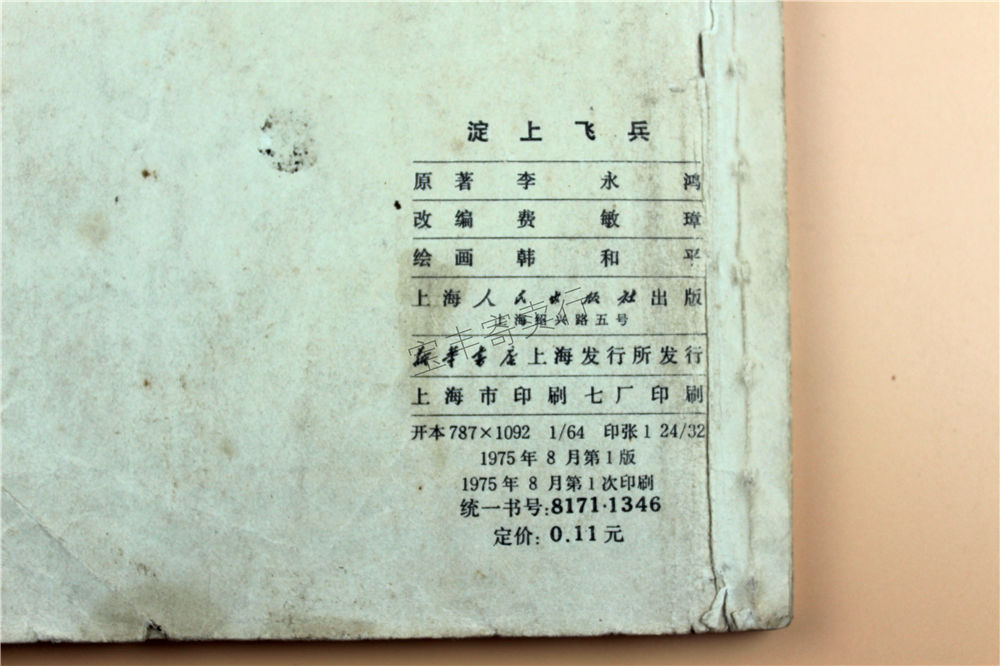 淀上飞兵
原著 李永鸿
改编 费敏璋
绘画 韩和平
上海人民出版社出版
上海绍兴路五号
新华书店上海发行所发行
上海市印刷七厂印刷
开本787×1092 1/64 印张1 24/32
1975年8月第1版
1975年8月第1次印刷
统一书号:8171·1346
定价: 0.11元
宝丰寄卖行